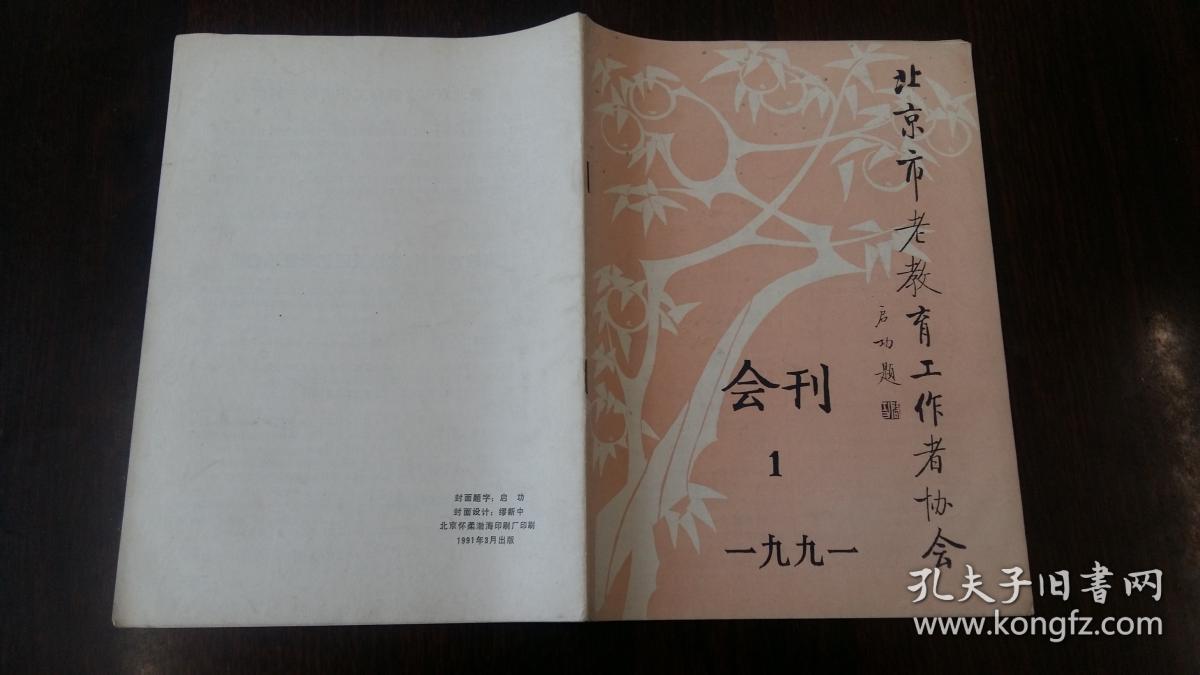 北京市老教育工作者协会
启功题
会刊
1
一九九一
封面题字：启 功
封面设计：缪新中
北京怀柔渤海印刷厂印刷
1991年3月出版
孔夫子旧书网
www.kongfz.com